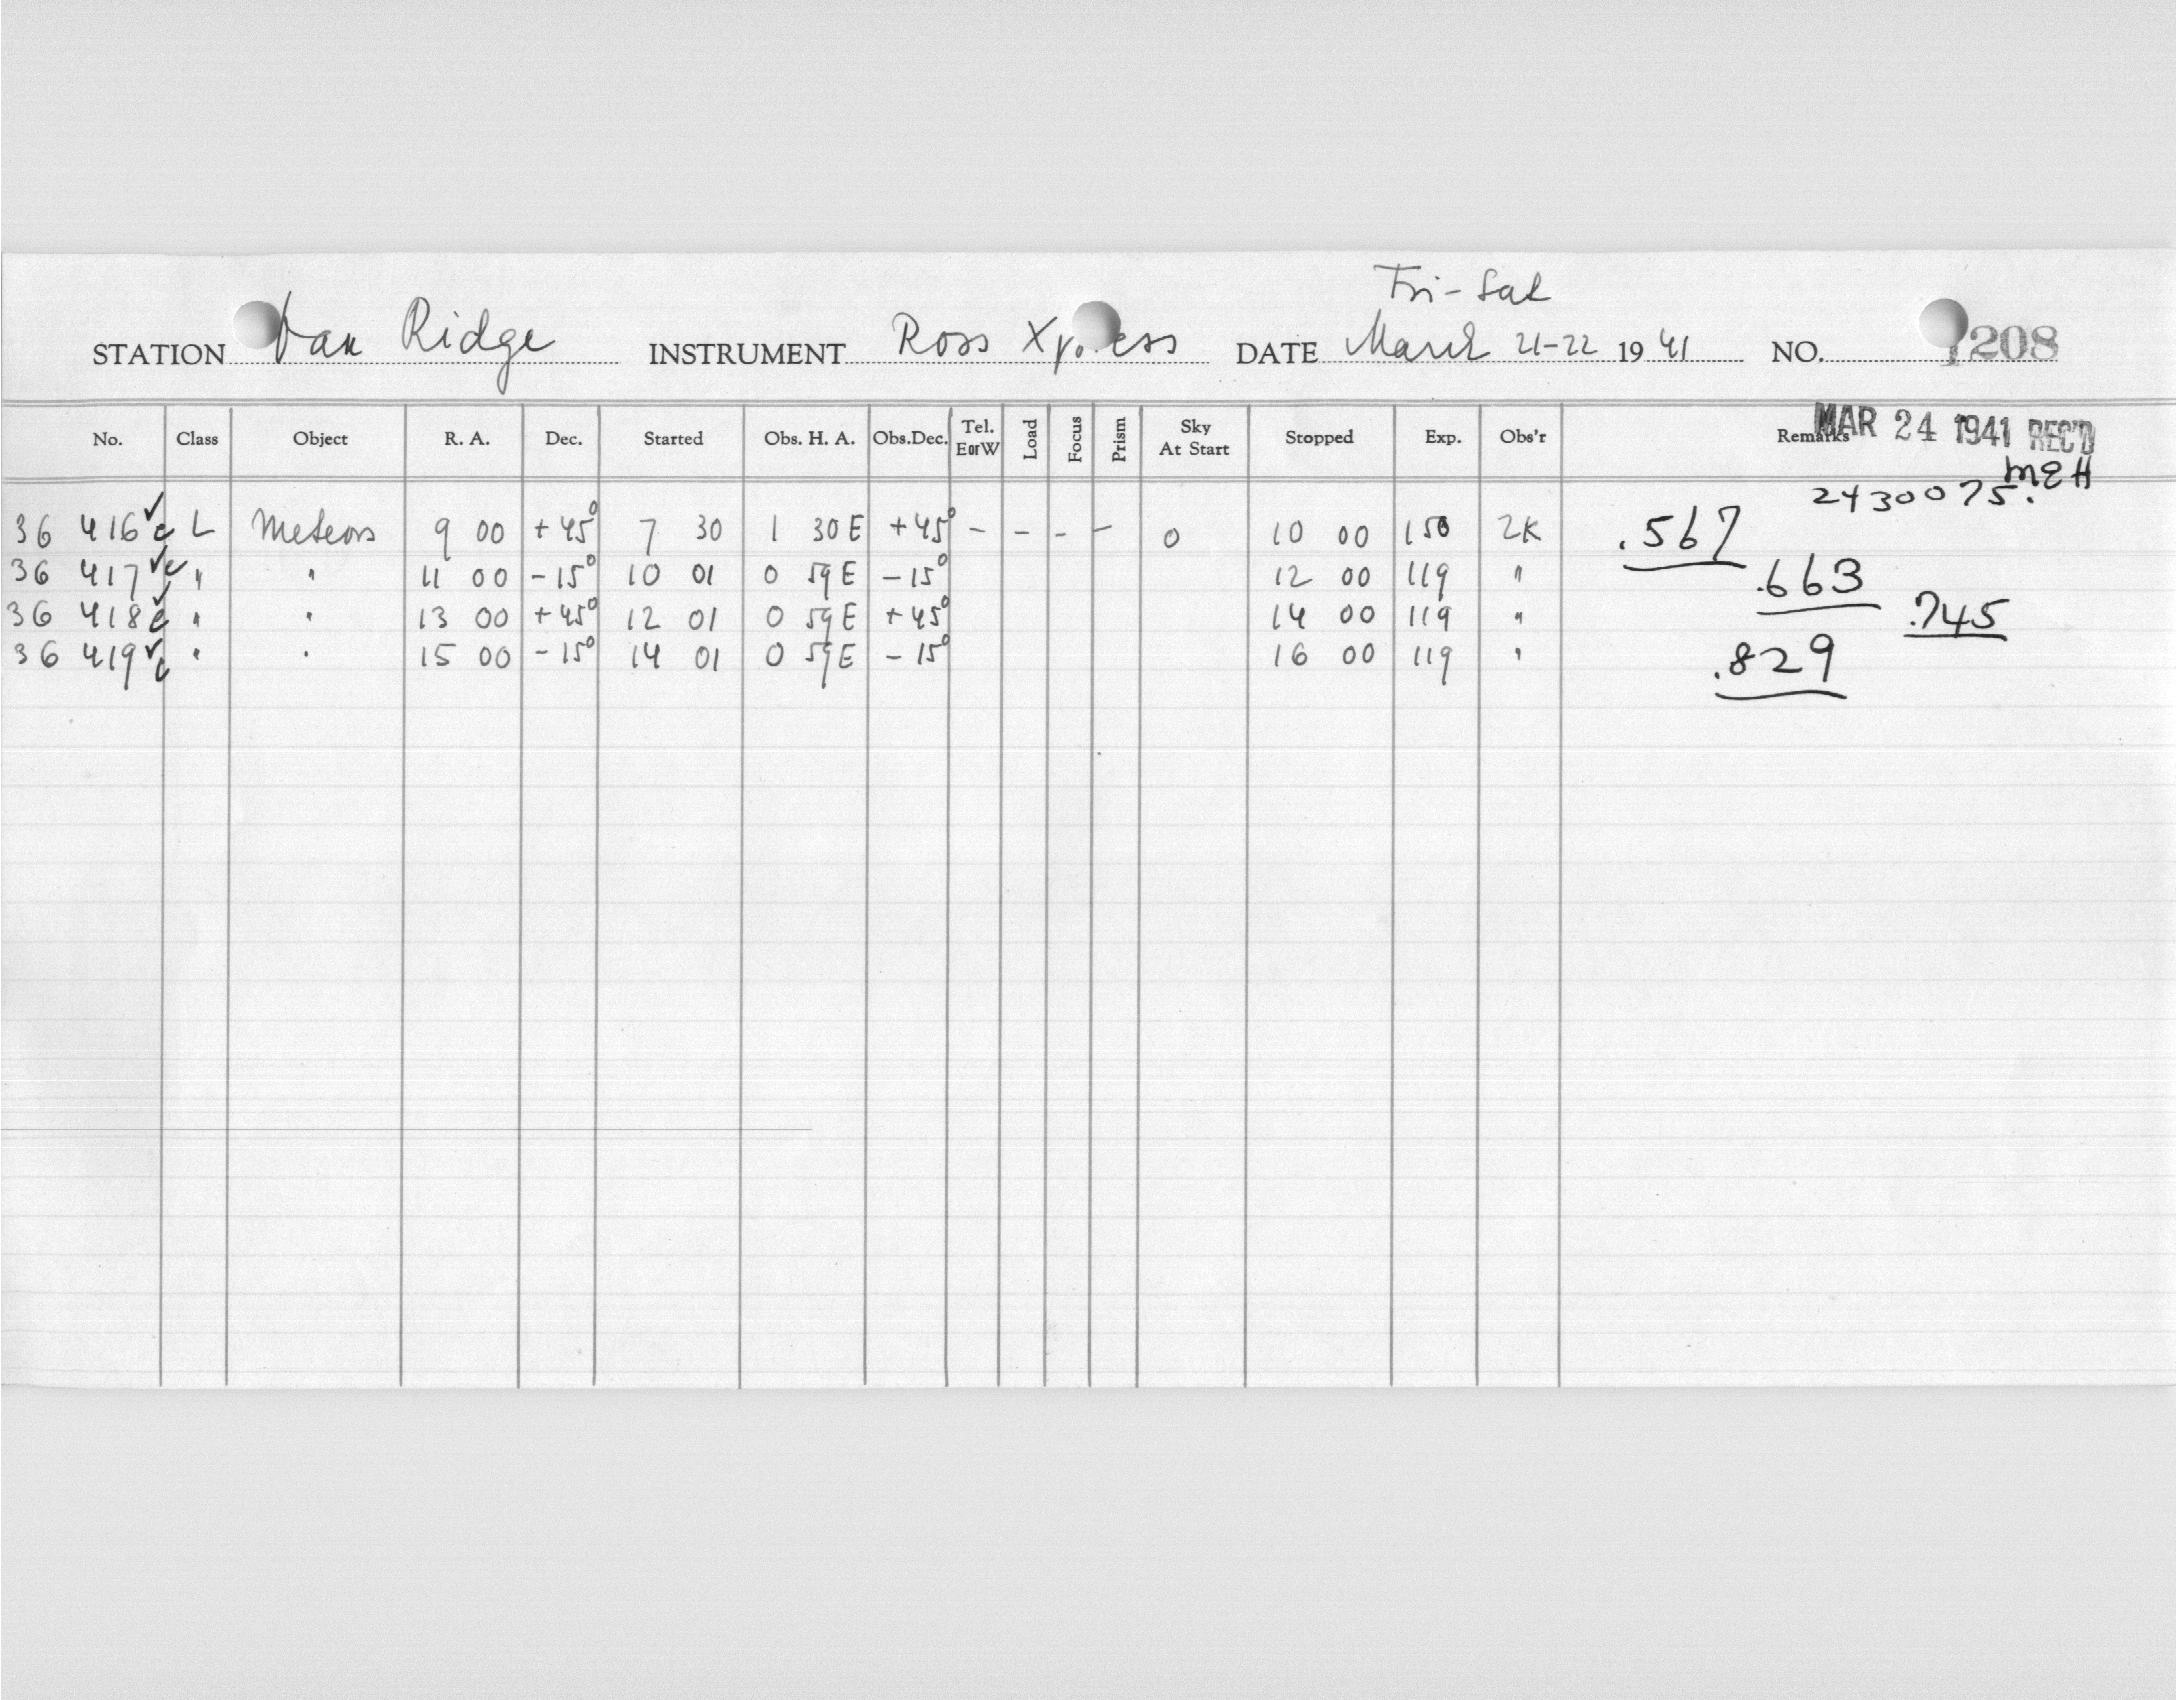 Fri-Sat
STATION Oak Ridge INSTRUMENT Ross Xpress DATE March 21-22 1941 NO. 1208
No. Class Object R. A. Dec. Started Obs. H. A. Obs.Dec. Tel. EorW Load Focus Prism Sky At Start Stopped Exp. Obs'r Remarks
MAR 24 1941 REC'D
MEH
2430075.
36 416 ✓ c L Meteors 9 00 +45° 7 30 1 30 E +45° - - - - 0 10 00 150 .567
36 417 ✓ c " " 11 00 -15° 10 01 0 59 E -15° 12 00 119 " .663
36 418 ✓ c " " 13 00 +45° 12 01 0 59 E +45° 14 00 119 " .745
36 419 ✓ c " " 15 00 -15° 14 01 0 59 E -15° 16 00 119 " .829